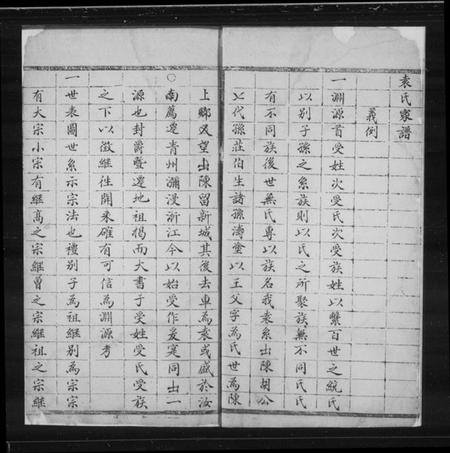 袁氏家譜
義例
一淵源首受姓次受氏次受族姓以繫百世之統氏
以別子孫之系族則以氏之所聚族無不同氏氏
有不同族後世無氏專以族名我袁系出陳胡公
七代孫莊伯生諸孫濤塗以王父字為氏世為陳
上卿及望出陳留新城其後去車為袁或盛於汝
南薦遷青州瀰漫浙江今以始受作爰寔同出一
源也封爵暨遷地祖揭而大書子受姓受氏受族
之下以徵繼往開來確有可信為淵源考
一世表圖世系示宗法也禮別子為祖繼別為宗宗
有大宗小宗有繼高之宗繼曾之宗繼祖之宗繼